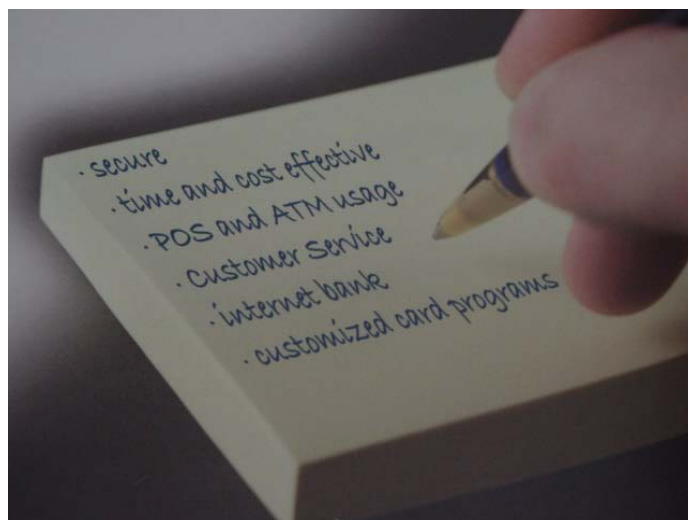 · secure
· time and cost effective
· POS and ATM usage
· Customer Service
· internet bank
· customized card programs